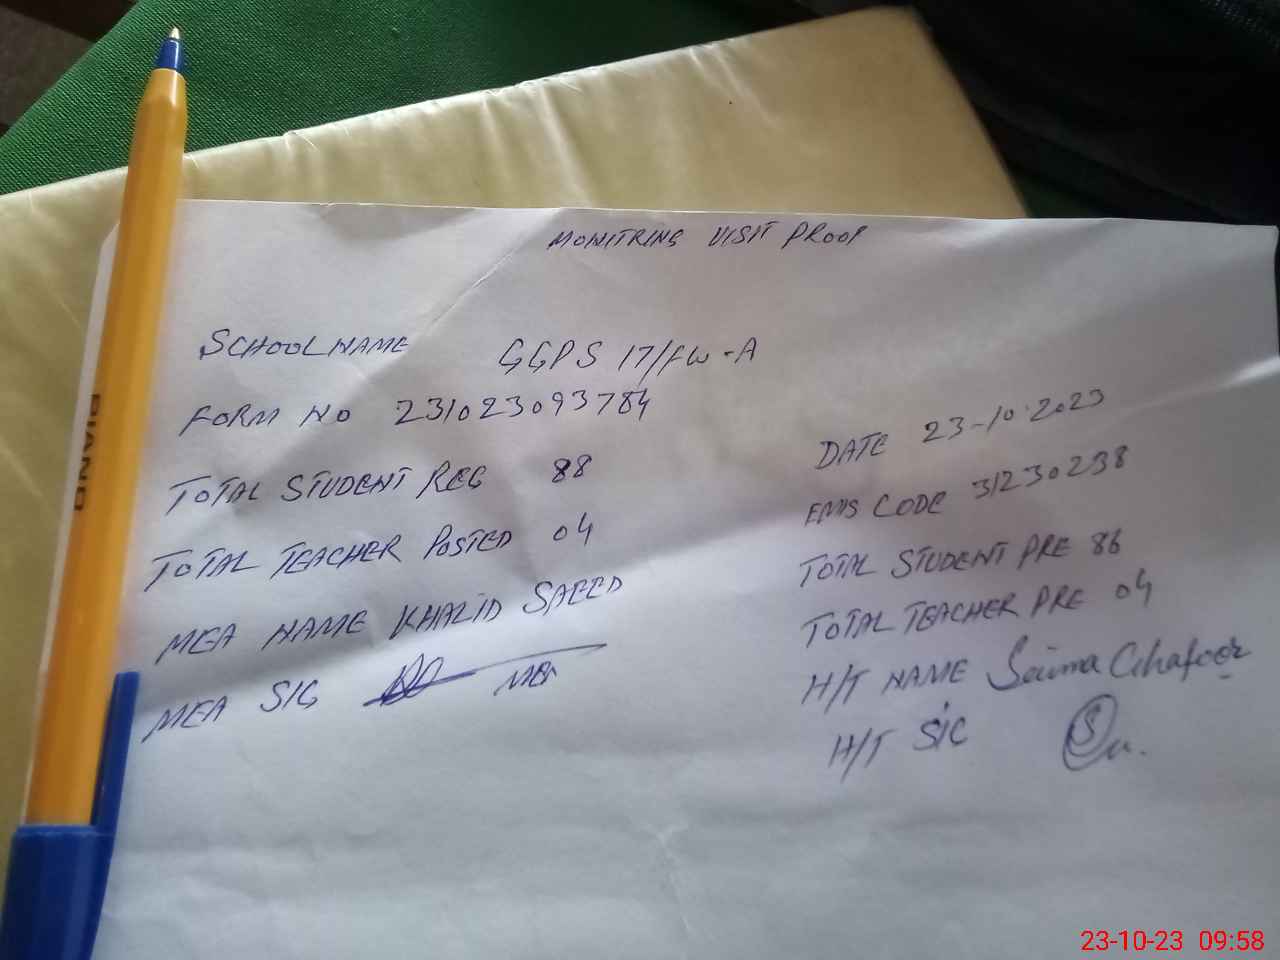 MONITRING VISIT PROOF
SCHOOL NAME GGPS 17/FW-A
FORM NO 231023093784
DATE 23-10-2023
TOTAL STUDENT REG 88
EMIS CODE 31230238
TOTAL TEACHER POSTED 04
TOTAL STUDENT PRE 86
MEA NAME KHALID SAEED
TOTAL TEACHER PRE 04
MEA SIG MEA
H/T NAME Saima Ghafoor
H/T SIG
PIANO
23-10-23 09:58